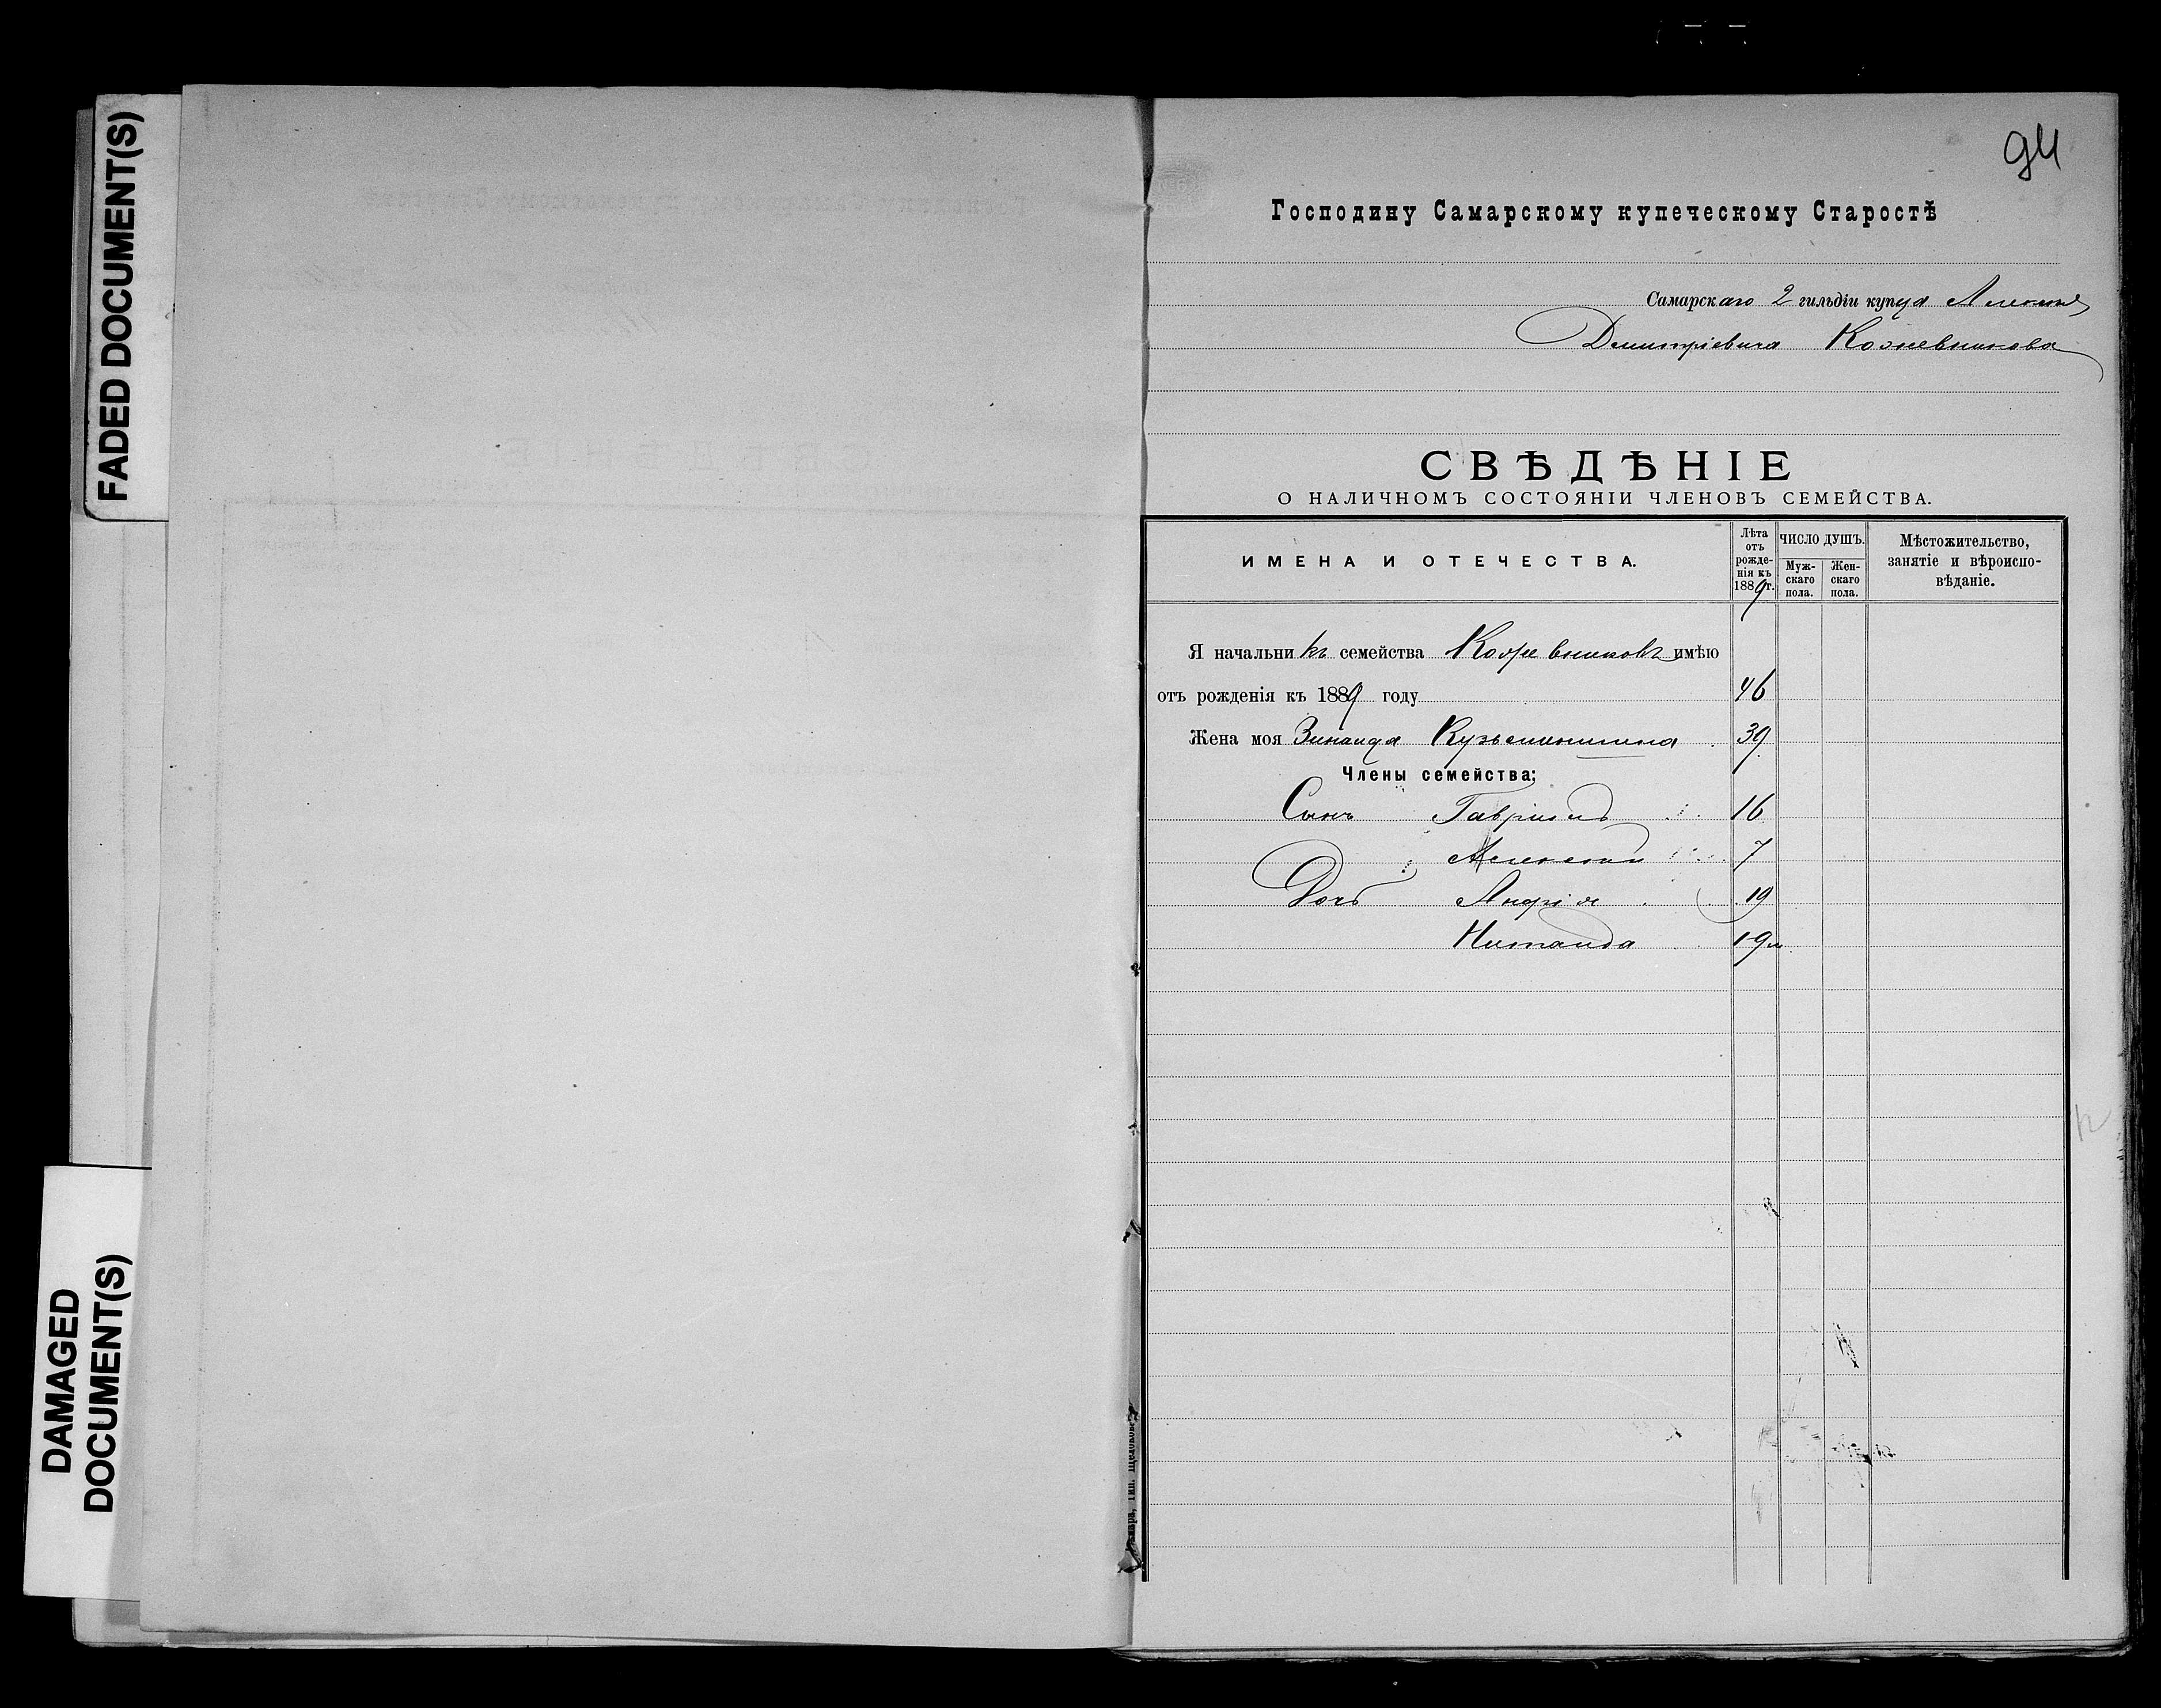 FADED DOCUMENT(S)
DAMAGED
DOCUMENT(S)
94
Господину Самарскому купеческому Старостѣ
Самарскаго 2 гильдіи купца
Дмитріевича Кожевникова
СВѢДѢНІЕ
О НАЛИЧНОМЪ СОСТОЯНІИ ЧЛЕНОВЪ СЕМЕЙСТВА.
ИМЕНА И ОТЕЧЕСТВА.
Лѣта отъ рожденія къ 1889 г.
ЧИСЛО ДУШЪ.
Мужскаго пола.
Женскаго пола.
Мѣстожительство, занятіе и вѣроисповѣданіе.
Я начальникъ семейства Кожевниковъ имѣю
отъ рожденія къ 1889 году 46
Жена моя Зинаида Кузьминишна 39
Члены семейства;
Сынъ Гавріилъ 16
Алексей 7
Дочь 19
9 м
Самара, Тип. Щелокова